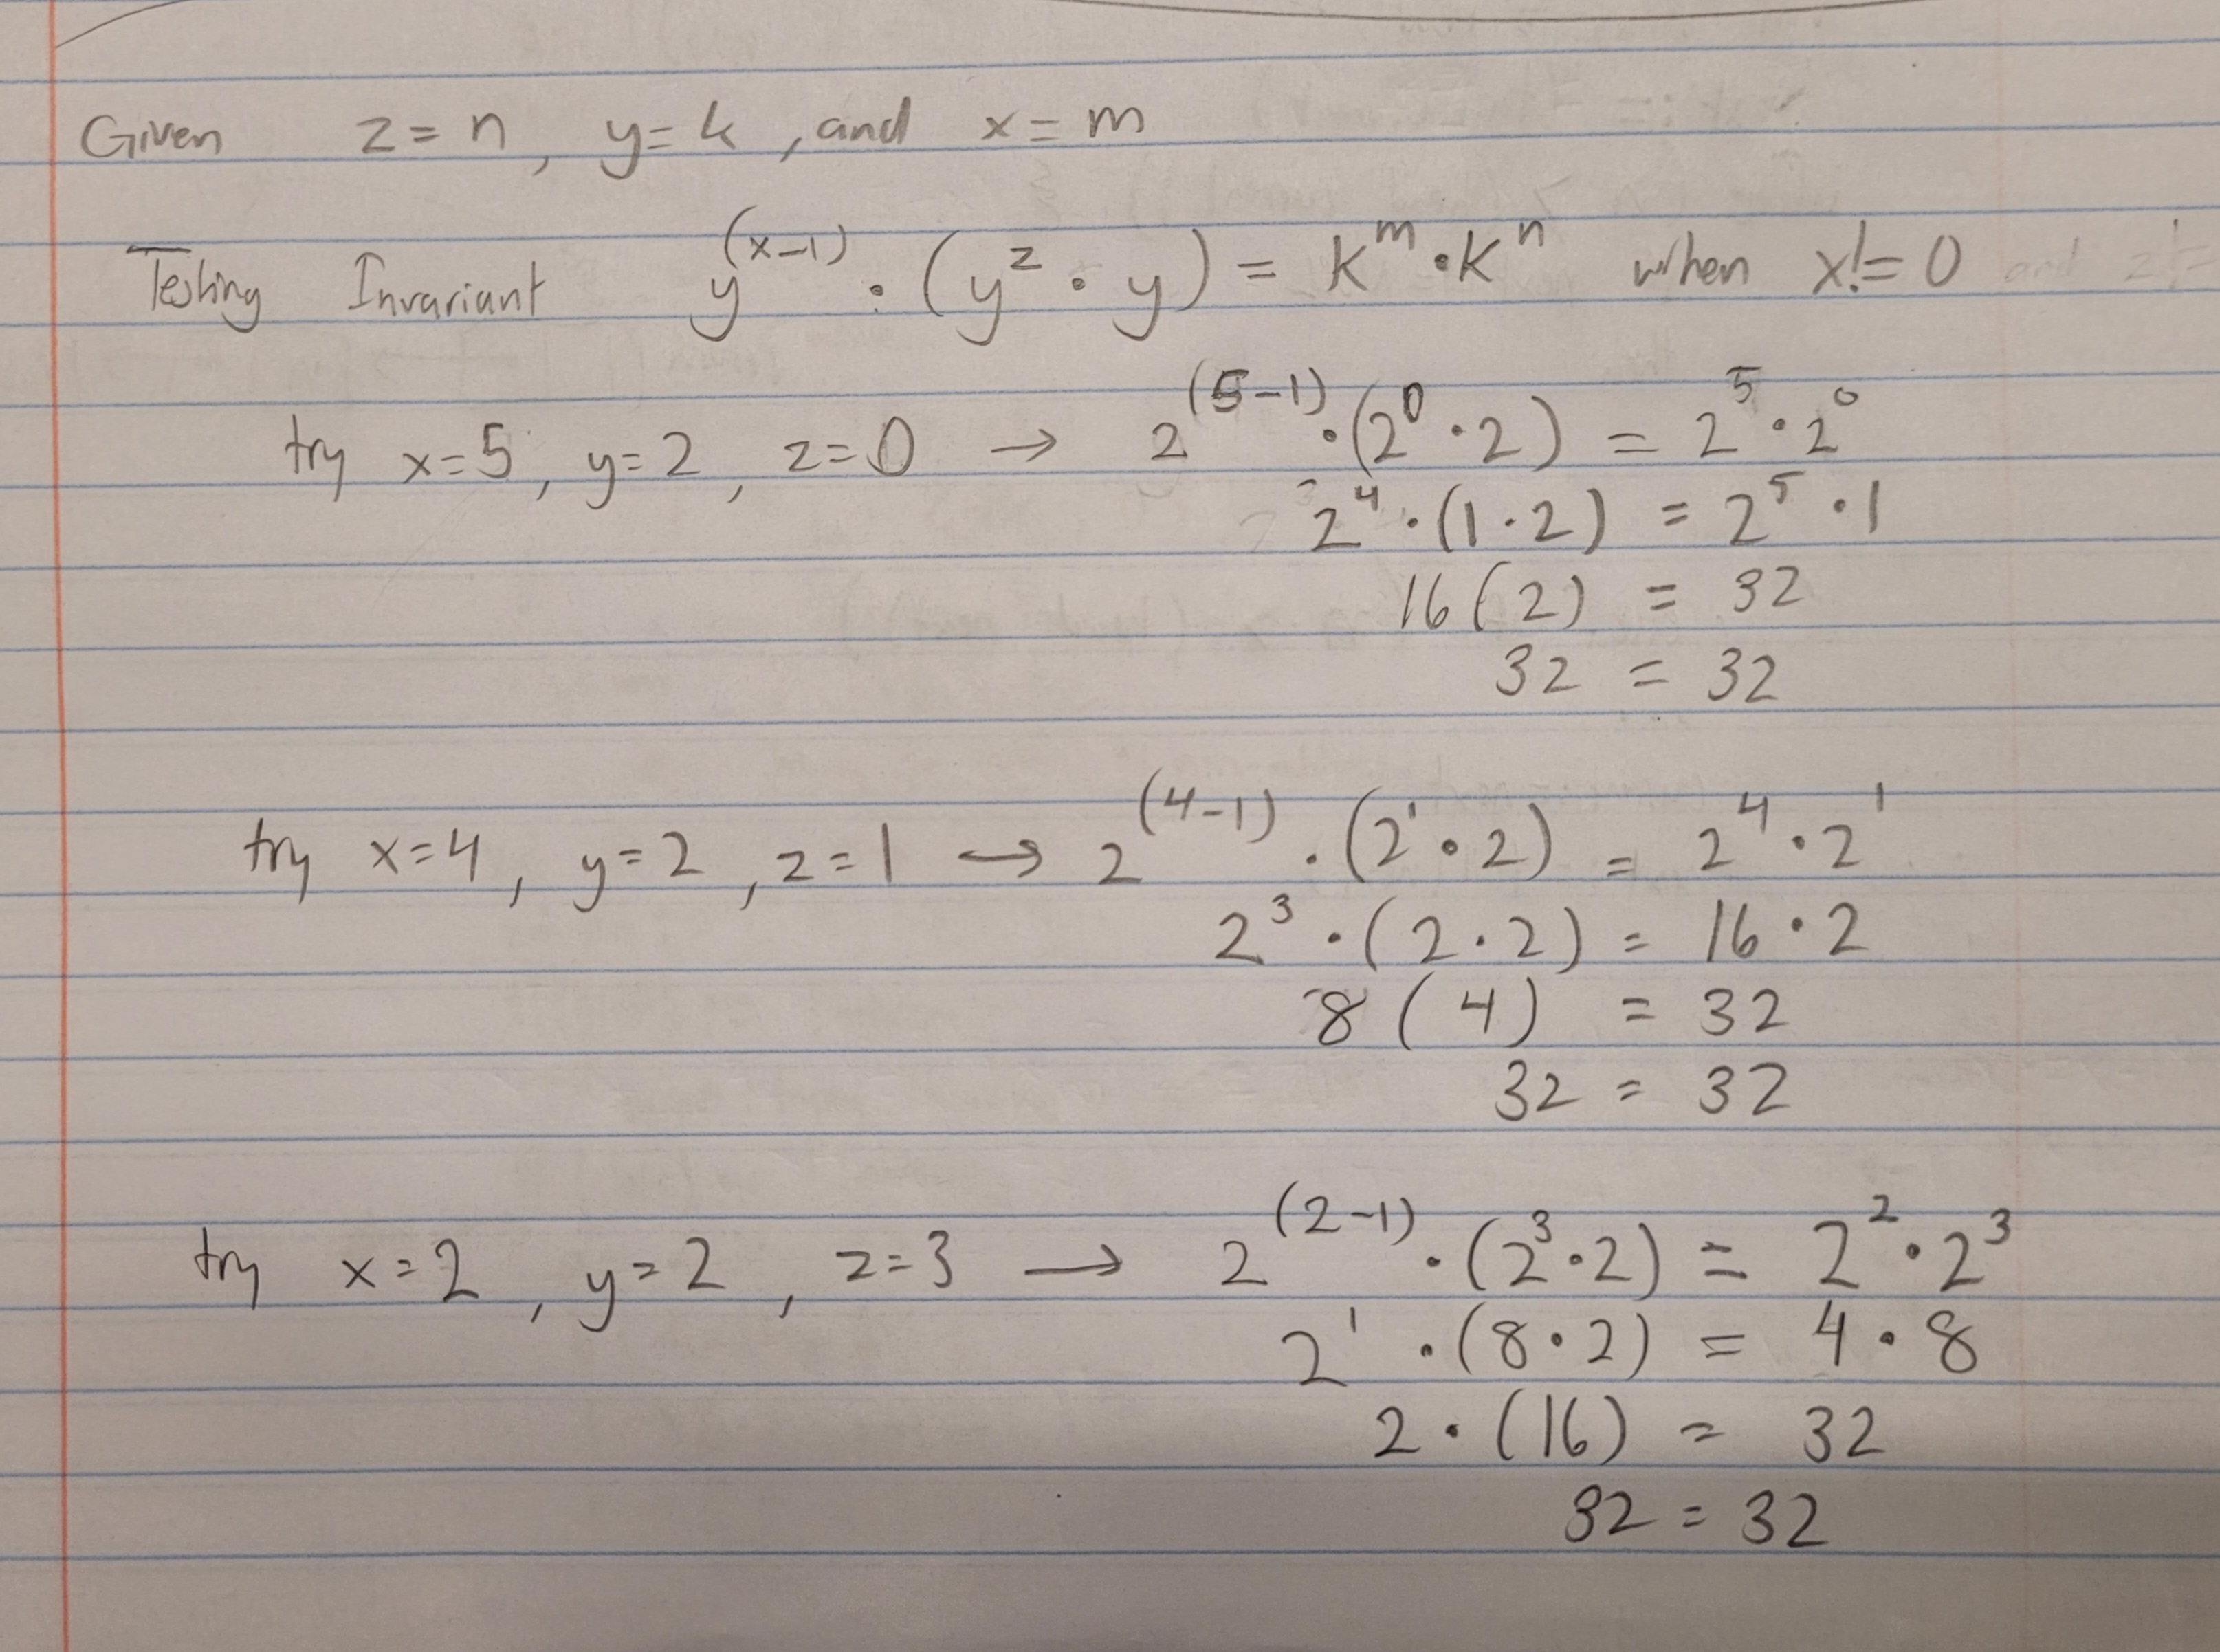 Given z = n, y = k, and x = m
Testing Invariant y^(x-1) · (y^z · y) = k^m · k^n when x != 0 and z !=
try x=5, y=2, z=0 → 2^(5-1) · (2^0 · 2) = 2^5 · 2^0
2^4 · (1 · 2) = 2^5 · 1
16(2) = 32
32 = 32
try x=4, y=2, z=1 → 2^(4-1) · (2^1 · 2) = 2^4 · 2^1
2^3 · (2 · 2) = 16 · 2
8(4) = 32
32 = 32
try x=2, y=2, z=3 → 2^(2-1) · (2^3 · 2) = 2^2 · 2^3
2^1 · (8 · 2) = 4 · 8
2 · (16) = 32
32 = 32